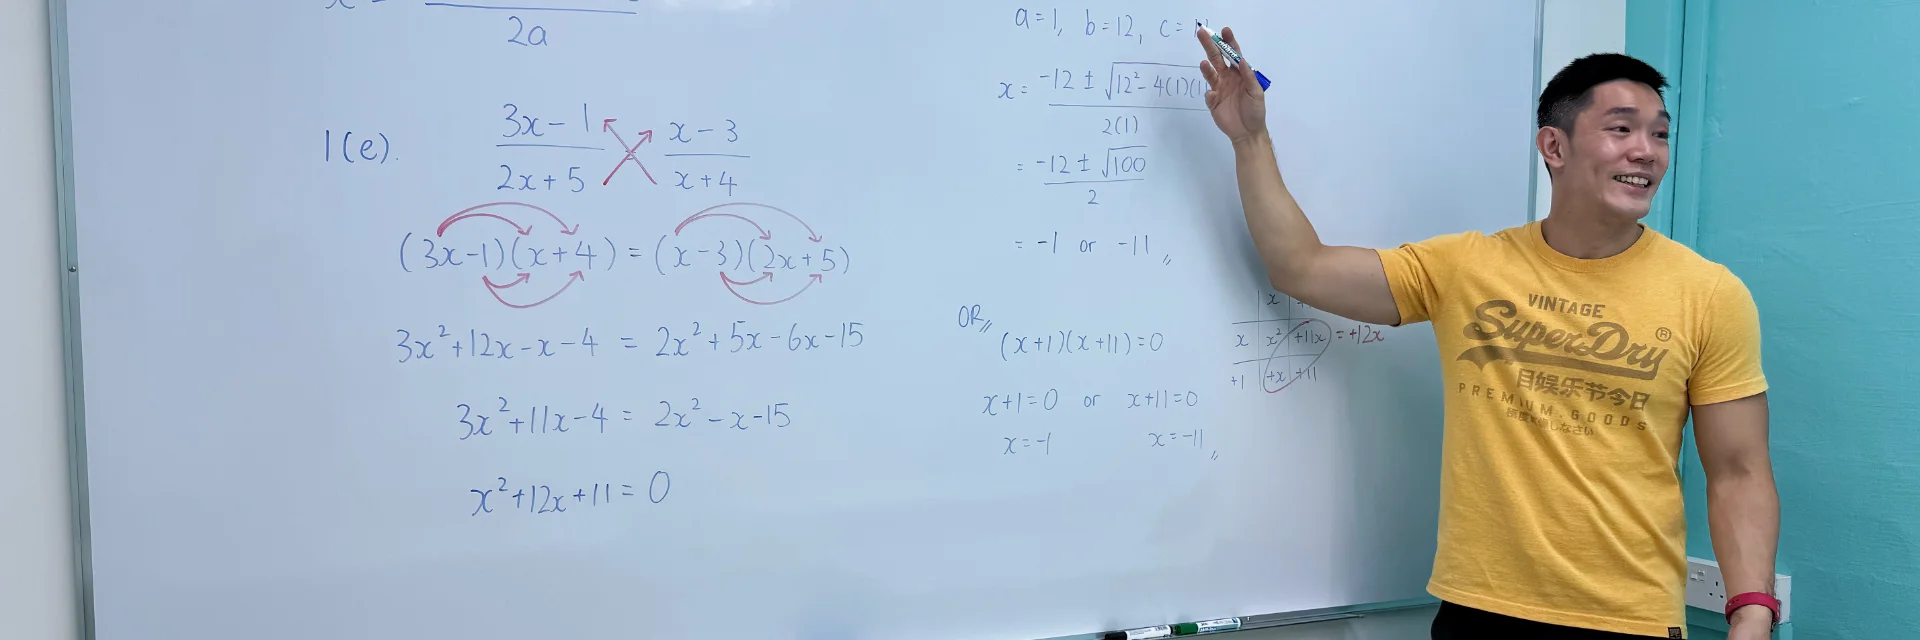 x =
2a
1(e).
3x - 1 = x - 3
2x + 5 x + 4
(3x-1)(x+4) = (x-3)(2x+5)
3x²+12x-x-4 = 2x²+5x-6x-15
3x²+11x-4 = 2x²-x-15
x²+12x+11 = 0
a=1, b=12, c=
x = -12 ± √12²-4(1)(
2(1)
= -12 ± √100
2
= -1 or -11
OR
(x+1)(x+11)=0
x+1=0 or x+11=0
x=-1 x=-11
x
x x² +11x = +12x
+1 +x +11
VINTAGE
SuperDry®
目娱乐节今日
PREMIUM.GOODS